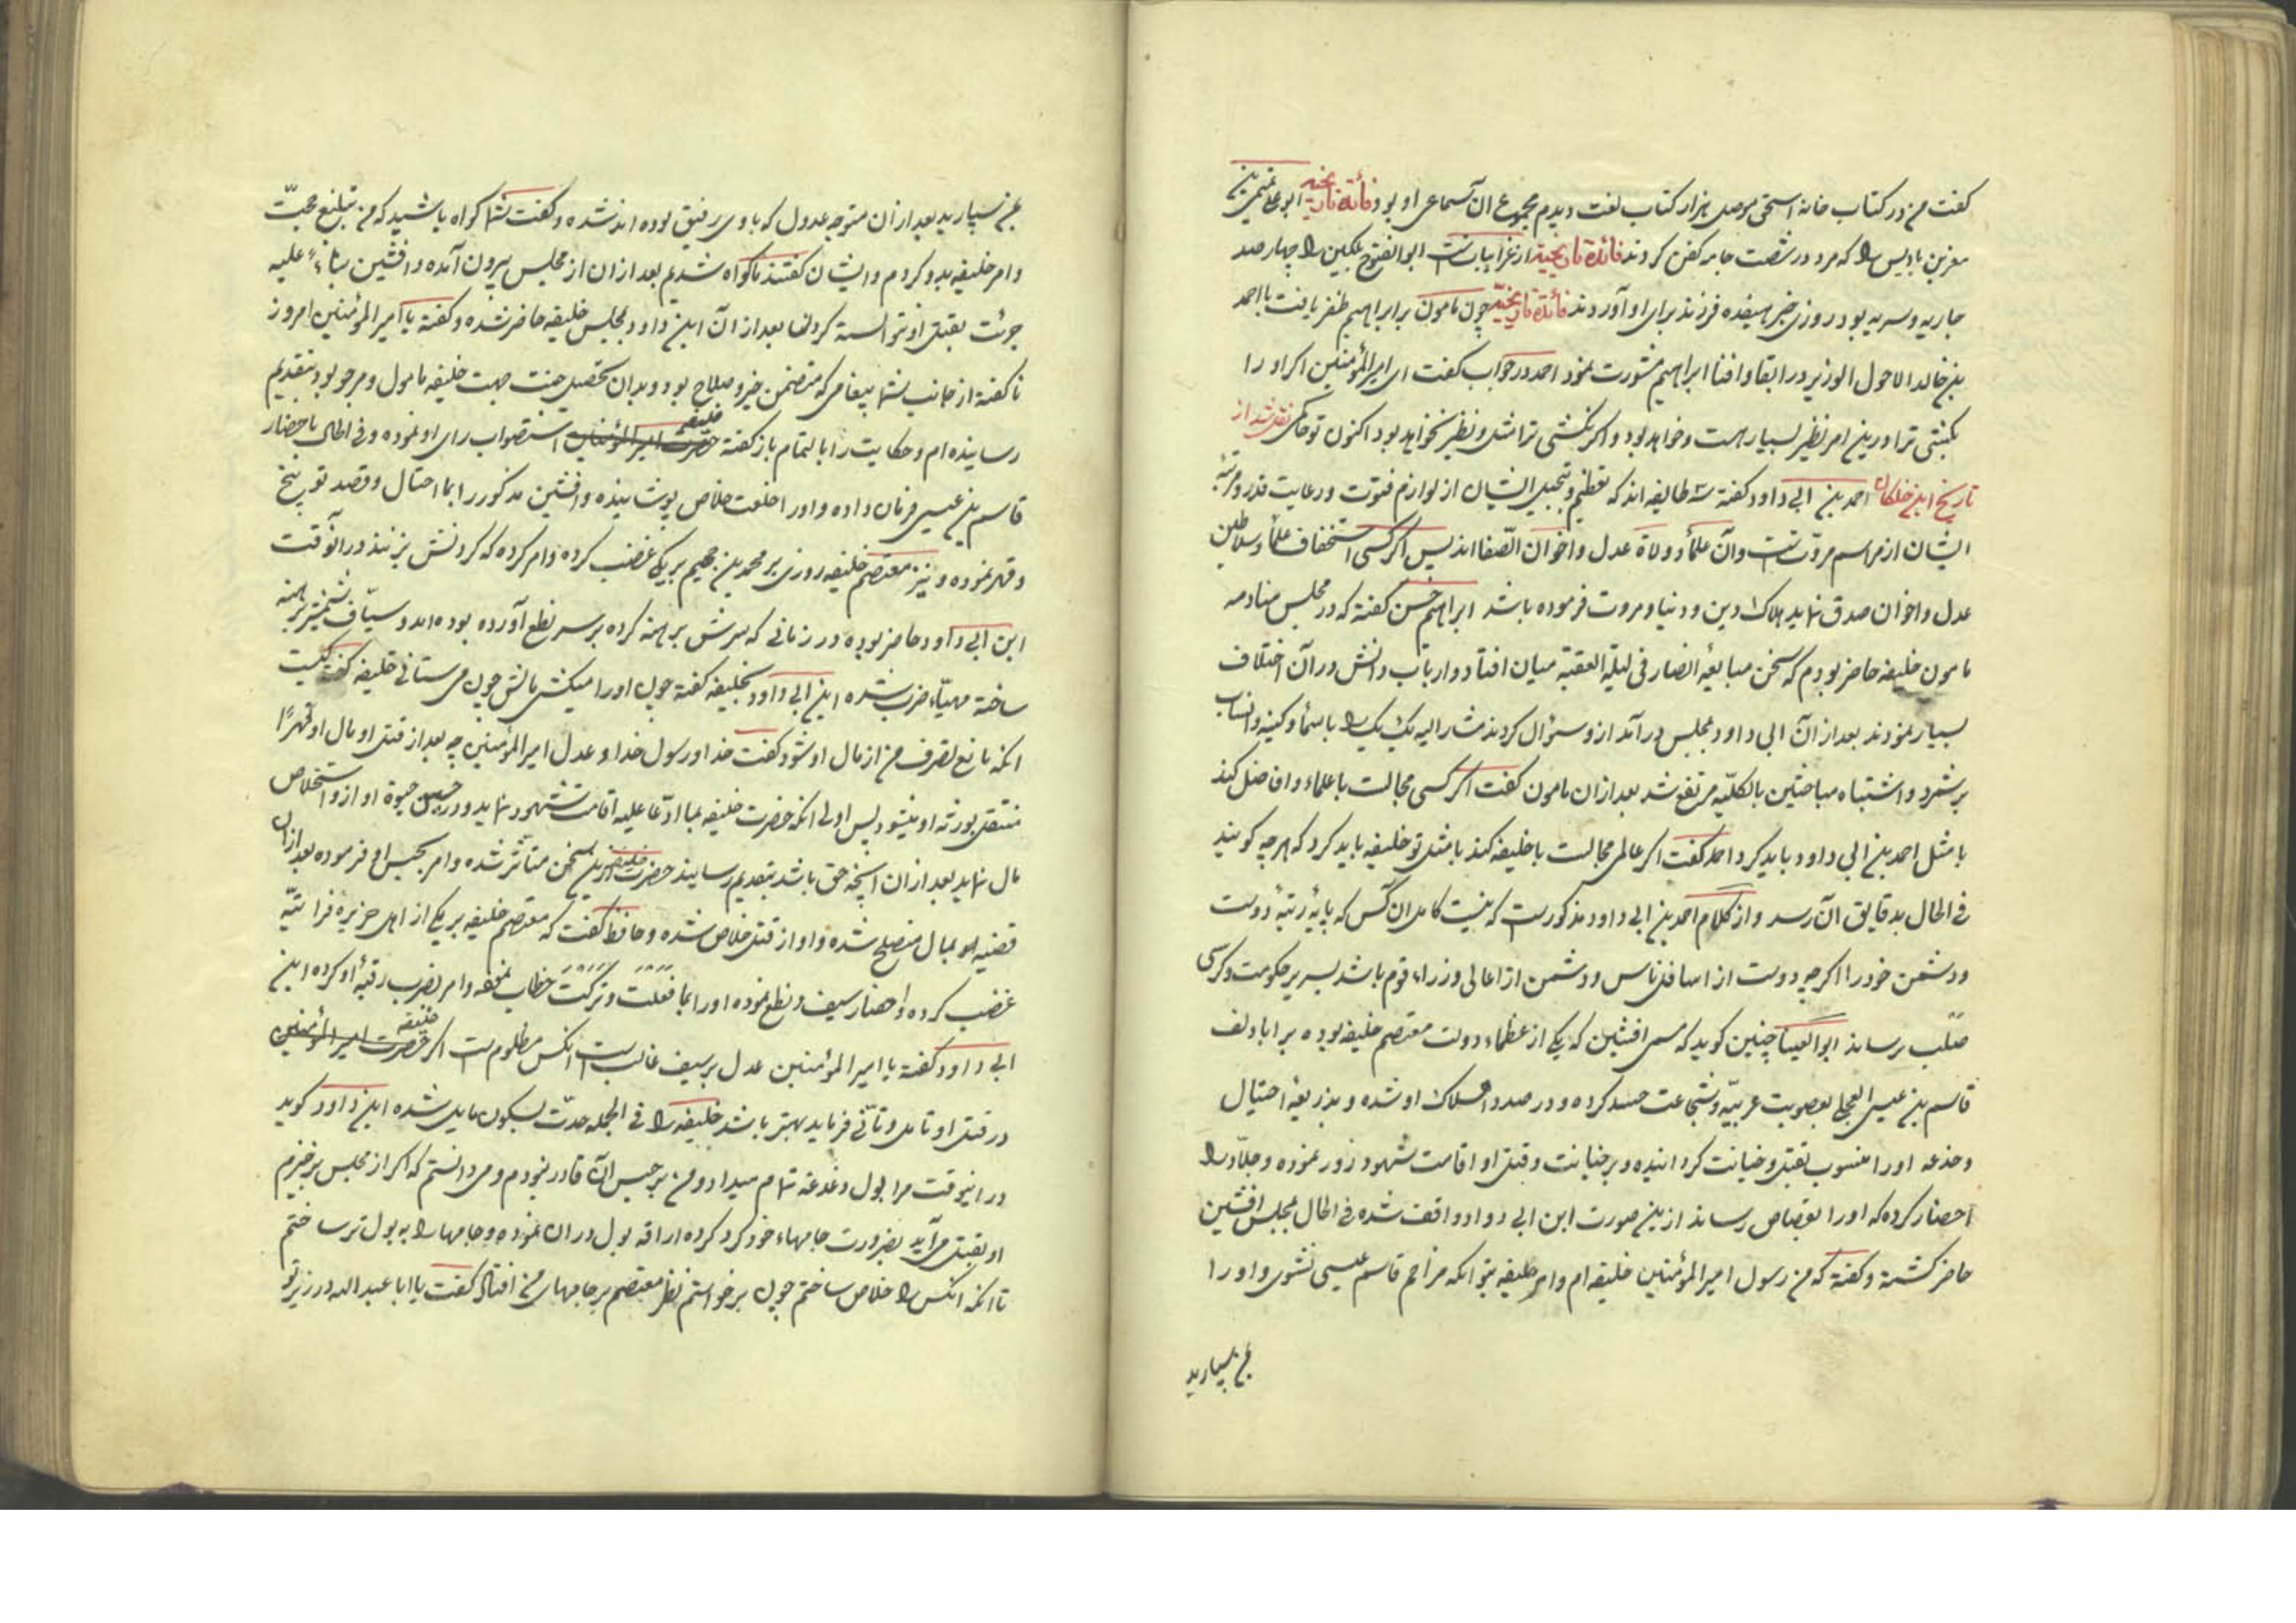 گفت من در کتاب خانه اسحق موصلی هزار کتاب لغت دیدم مجموع آن سماعی او بود فائدة تاریخیة ابو علی تمیم بن
معز بن بادیس را که مرد در شصت جامه کفن کردند فائدة تاریخیة از غرایبات است ابو الفتوح بلکین را چهار صد
جاریه و سریه بود در روزی خبر هیفده فرزند برای او آوردند فائدة تاریخیة چون مامون بر ابراهیم ظفر یافت با احمد
بن خالد الاحول الوزیر در ابقا و افنا ابراهیم مشورت نمود احمد در جواب گفت ای امیر المؤمنین اکر او را
بکشی ترا در این امر نظیر بسیار هست و خواهد بود و اکر نکشی ترا مثل و نظیر نخواهد بود اکنون تو حاکمی نقل شد از
تاریخ ابن خلکان احمد بن ابی داود گفته سه طایفه اند که تعظیم و تبجیل ایشان از لوازم فتوت و رعایت قدر و مرتبهٔ
ایشان از مراسم مروتست وآن علمأ و ولاة عدل و اخوان الصفا اند پس اکر کسی استخفاف علمأ و سلاطین
عدل و اخوان صدق نماید هلاک دین و دنیا و مروت فرموده باشد ابراهیم حسن گفته که در مجلس منادمه
مامون خلیفه حاضر بودم که سخن مبایعهٔ انصار فی لیلة العقبة میان افتاد و ارباب دانش در آن اختلاف
بسیار نمودند بعد از آن ابی داود بمجلس در آمد ازو سؤال کردند مشار الیه یک یک را باسمأ و کنیه و انساب
بر شمرد و اشتباه مباحثین بالکلیه مرتفع شد بعد از ان مامون گفت اکر کسی مجالست با علماء و افاضل کند
با مثل احمد بن ابی داود باید کرد احمد گفت اکر عالمی مجالست با خلیفه کند با مثل تو خلیفه باید کرد که هر چه گویند
فی الحال بدقایق آن رسد و از کلام احمد بن ابی داود مذکورست که نیست کامل آن کس که پایهٔ رتبهٔ دوست
و دشمن خود را اکرچه دوست از اسافل ناس و دشمن از اعالی وزراء قوم باشد بسریر حکومت و کرسی
صلب رساند ابو العینا چنین گوید که افشین که یکی از عظماء دولت معتصم خلیفه بوده بر ابا دلف
قاسم بن عیسی العجلی بعصوبیت عربیه و شجاعت حسد کرده و در صدد اهلاک او شده و بذریعهٔ احتیال
و خدعه او را منسوب بقتل و خیانت کردانیده و بر خیانت و قتل او اقامت شهود زور نموده و جلاد را
احضار کرده که او را بقصاص رساند ازین صورت ابن ابی دواد واقف شده فی الحال بمجلس افشین
حاضر گشته و گفته که من رسول امیر المؤمنین خلیفه ام و امر خلیفه بتو آنکه مزاحم قاسم عیسی نشوی و او را
بمن سپارید
بمن سپارید بعد از آن متوجه عدول که با وی رفیق بوده اند شده و گفت شما گواه باشید که من تبلیغ محبت
و امر خلیفه بدو کردم و ایشان گفتند ما گواه شدیم بعد از ان از مجلس بیرون آمده و افشین بناءً علیه
جرئت بقتل او نتوانسته کردن اما بعد از آن ابن داود بمجلس خلیفه حاضر شده و گفته یا امیر المؤمنین امروز
نا گفته از جانب شما پیغامی که متضمن خیر و صلاح بود و بدان تحصیل جنت جهت خلیفه مامول و مرجو بود بتقدیم
رسانیده ام و حکایت را بالتمام باز گفته خلیفه حضرت امیر المؤمنین استصواب رای او نموده و فی الحال باحضار
قاسم بن عیسی فرمان داده و او را خلعت خلاص پوشانیده و افشین مذکور را بما احتال و قصد توبیخ
و قهر نموده و نیز معتصم خلیفه روزی بر محمد بن جهم برمکی غضب کرده و امر کرده که کردنش بزنند در آنوقت
ابن ابی داود حاضر بوده در زمانی که سرش برهنه کرده بر سر نطع آورده بوده اند و سیاف شمشیر برهنه
ساخته مهیاء ضرب شده ابن ابی داود بخلیفه گفته چون او را میکشی مالش چون می ستانی خلیفه گفت کیست
آنکه مانع تصرف من از مال او شود گفت خدا و رسول خدا و عدل امیر المؤمنین چه بعد از قتل او مال او قهرًا
منتقل بورثه او میشود پس اولی آنکه حضرت خلیفه بما ادعا علیه اقامت شهود نماید و در حین حیوة او ازو استخلاص
مال نماید بعد ازان آنچه حق باشد بتقدیم رسانیند حضرت خلیفه ازین سخن متأثر شده و امر بحبس او فرموده بعد از آن
قضیه او بمال منصلح شده و او از قتل خلاص شده و حافظ گفت که معتصم خلیفه بر یکی از اهل جزیره فراتیه
غضب کرده و احضار سیف و نطع نموده او را بما فعلت و ترکت خطاب نموده و امر بضرب رقبهٔ او کرده ابن
ابی داود گفته یا امیر المؤمنین عدل بر سیف غالب است آنکس مظلوم است اکر خلیفه حضرت امیر المؤمنین
در قتل او تامل و تأنی فرماید بهتر باشد خلیفه را فی الجمله حدت بسکون مایل شده ابن داود گوید
در اینوقت مرا بول دغدغه تمام میداد و من بر حبس آن قادر نبودم و می دانستم که اکر از مجلس برخیزم
او بقتل می آید بضرورت جامهاء خود گرد کرده اراقه بول در ان نموده و جامها را به بول تر ساختم
تا آنکه آنکس را خلاص ساختم چون برخواستم نظر معتصم بر جامهای من افتاد گفت یا ابا عبد الله در زیر تو